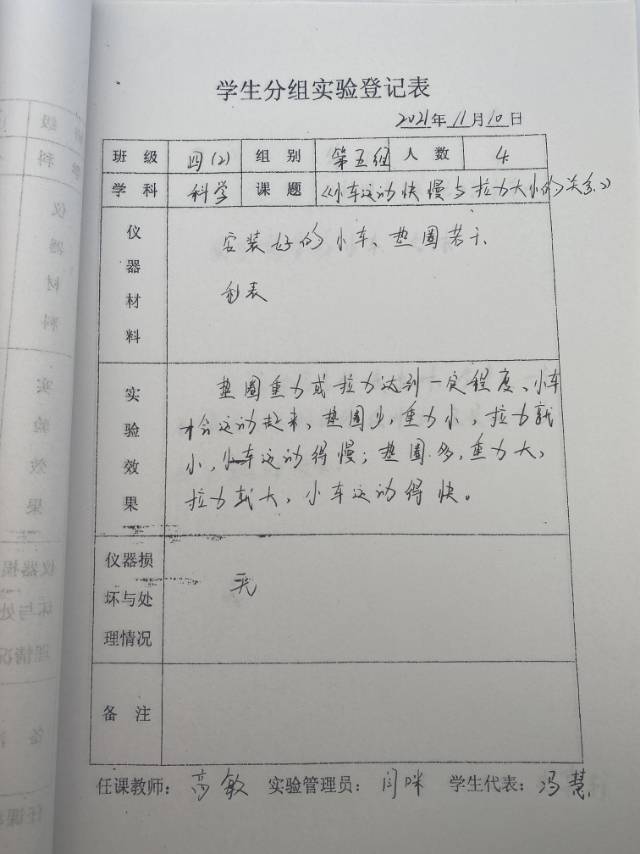 学生分组实验登记表
2021年11月10日
班级 四(2) 组别 第五组 人数 4
学科 科学 课题 《小车运动快慢与拉力大小的关系》
仪器材料
安装好的小车、垫圈若干
秒表
实验效果
垫圈重力或拉力达到一定程度、小车
才会运动起来、垫圈少,重力小,拉力就
小,小车运动得慢;垫圈多,重力大,
拉力就大,小车运动得快。
仪器损
坏与处
理情况
无
备注
任课教师:高敏 实验管理员:闫咪 学生代表:冯慧